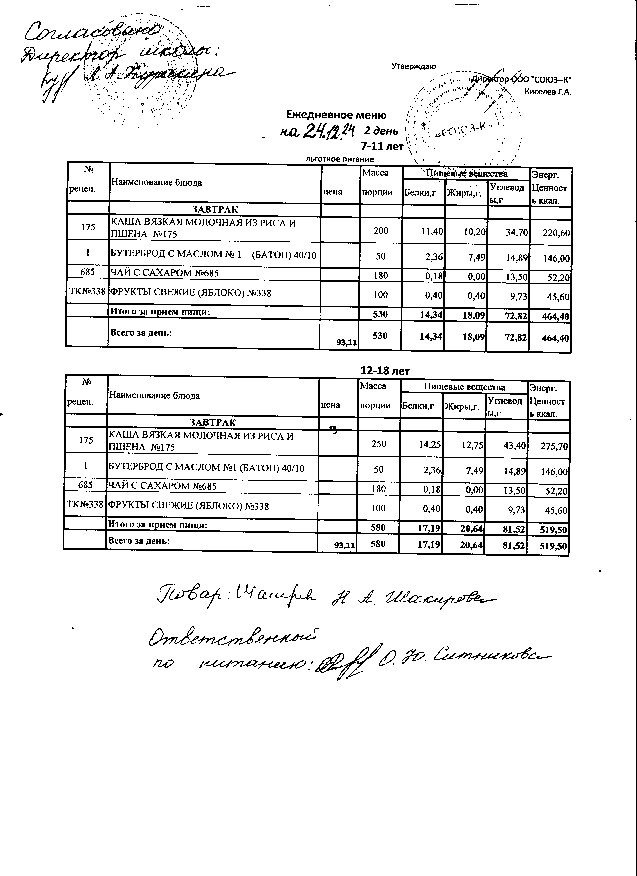 Согласовано
Директор школы:
Утверждаю
Директор ООО "СОЮЗ-К"
Киселев Г.А.
"СОЮЗ-К"
Ежедневное меню
на 24.12.24 2 день
7-11 лет
льготное питание
№ рецеп. Наименование блюда цена Масса порции Пищевые вещества Энерг. Ценност ь ккал.
Белки,г Жиры,г. Углевод ы,г
ЗАВТРАК
175 КАША ВЯЗКАЯ МОЛОЧНАЯ ИЗ РИСА И ПШЕНА №175 200 11,40 10,20 34,70 220,60
1 БУТЕРБРОД С МАСЛОМ № 1 (БАТОН) 40/10 50 2,36 7,49 14,89 146,00
685 ЧАЙ С САХАРОМ №685 180 0,18 0,00 13,50 52,20
ТК№338 ФРУКТЫ СВЕЖИЕ (ЯБЛОКО) №338 100 0,40 0,40 9,73 45,60
Итого за прием пищи: 530 14,34 18,09 72,82 464,40
Всего за день: 93,11 530 14,34 18,09 72,82 464,40
12-18 лет
№ рецеп. Наименование блюда цена Масса порции Пищевые вещества Энерг. Ценност ь ккал.
Белки,г Жиры,г. Углевод ы,г
ЗАВТРАК
175 КАША ВЯЗКАЯ МОЛОЧНАЯ ИЗ РИСА И ПШЕНА №175 250 14,25 12,75 43,40 275,70
1 БУТЕРБРОД С МАСЛОМ №1 (БАТОН) 40/10 50 2,36 7,49 14,89 146,00
685 ЧАЙ С САХАРОМ №685 180 0,18 0,00 13,50 52,20
ТК№338 ФРУКТЫ СВЕЖИЕ (ЯБЛОКО) №338 100 0,40 0,40 9,73 45,60
Итого за прием пищи: 580 17,19 20,64 81,52 519,50
Всего за день: 93,11 580 17,19 20,64 81,52 519,50
Повар: Н А. Шакирова
Ответственной
по питанию: О. Ю. Ситникова